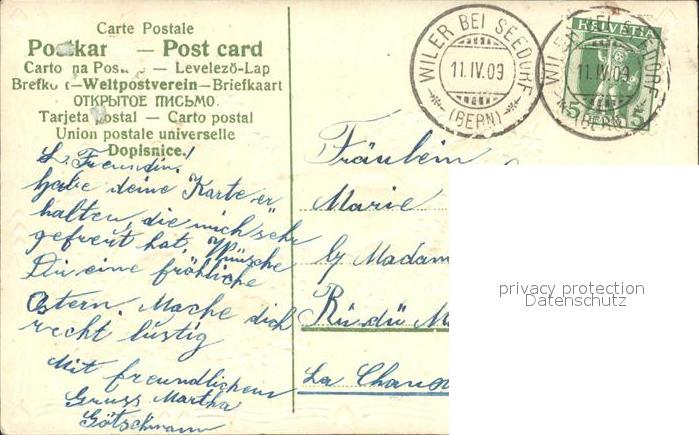 Carte Postale
Postkar — Post card
Carto na Pos — Levelező-Lap
Brefko t—Weltpostverein—Briefkaart
ОТКРЫТОЕ ПИСЬМО.
Tarjeta postal — Carto postal
Union postale universelle
Dopisnice.
L. Freundin!
Habe deine Karte er
halten, die mich sehr
gefreut hat, Wünsche
Dir eine fröhliche
Ostern. Mache dich
recht lustig
Mit freundlichem
Gruss Martha
Götschmann
WILER BEI SEEDORF
11.IV.09
(BERN)
HELVETIA
WILER BEI SEEDORF
11.IV.09
(BERN)
5 5
Fräulein
Marie
by Madam
Rü dü M
La Chau
privacy protection
Datenschutz